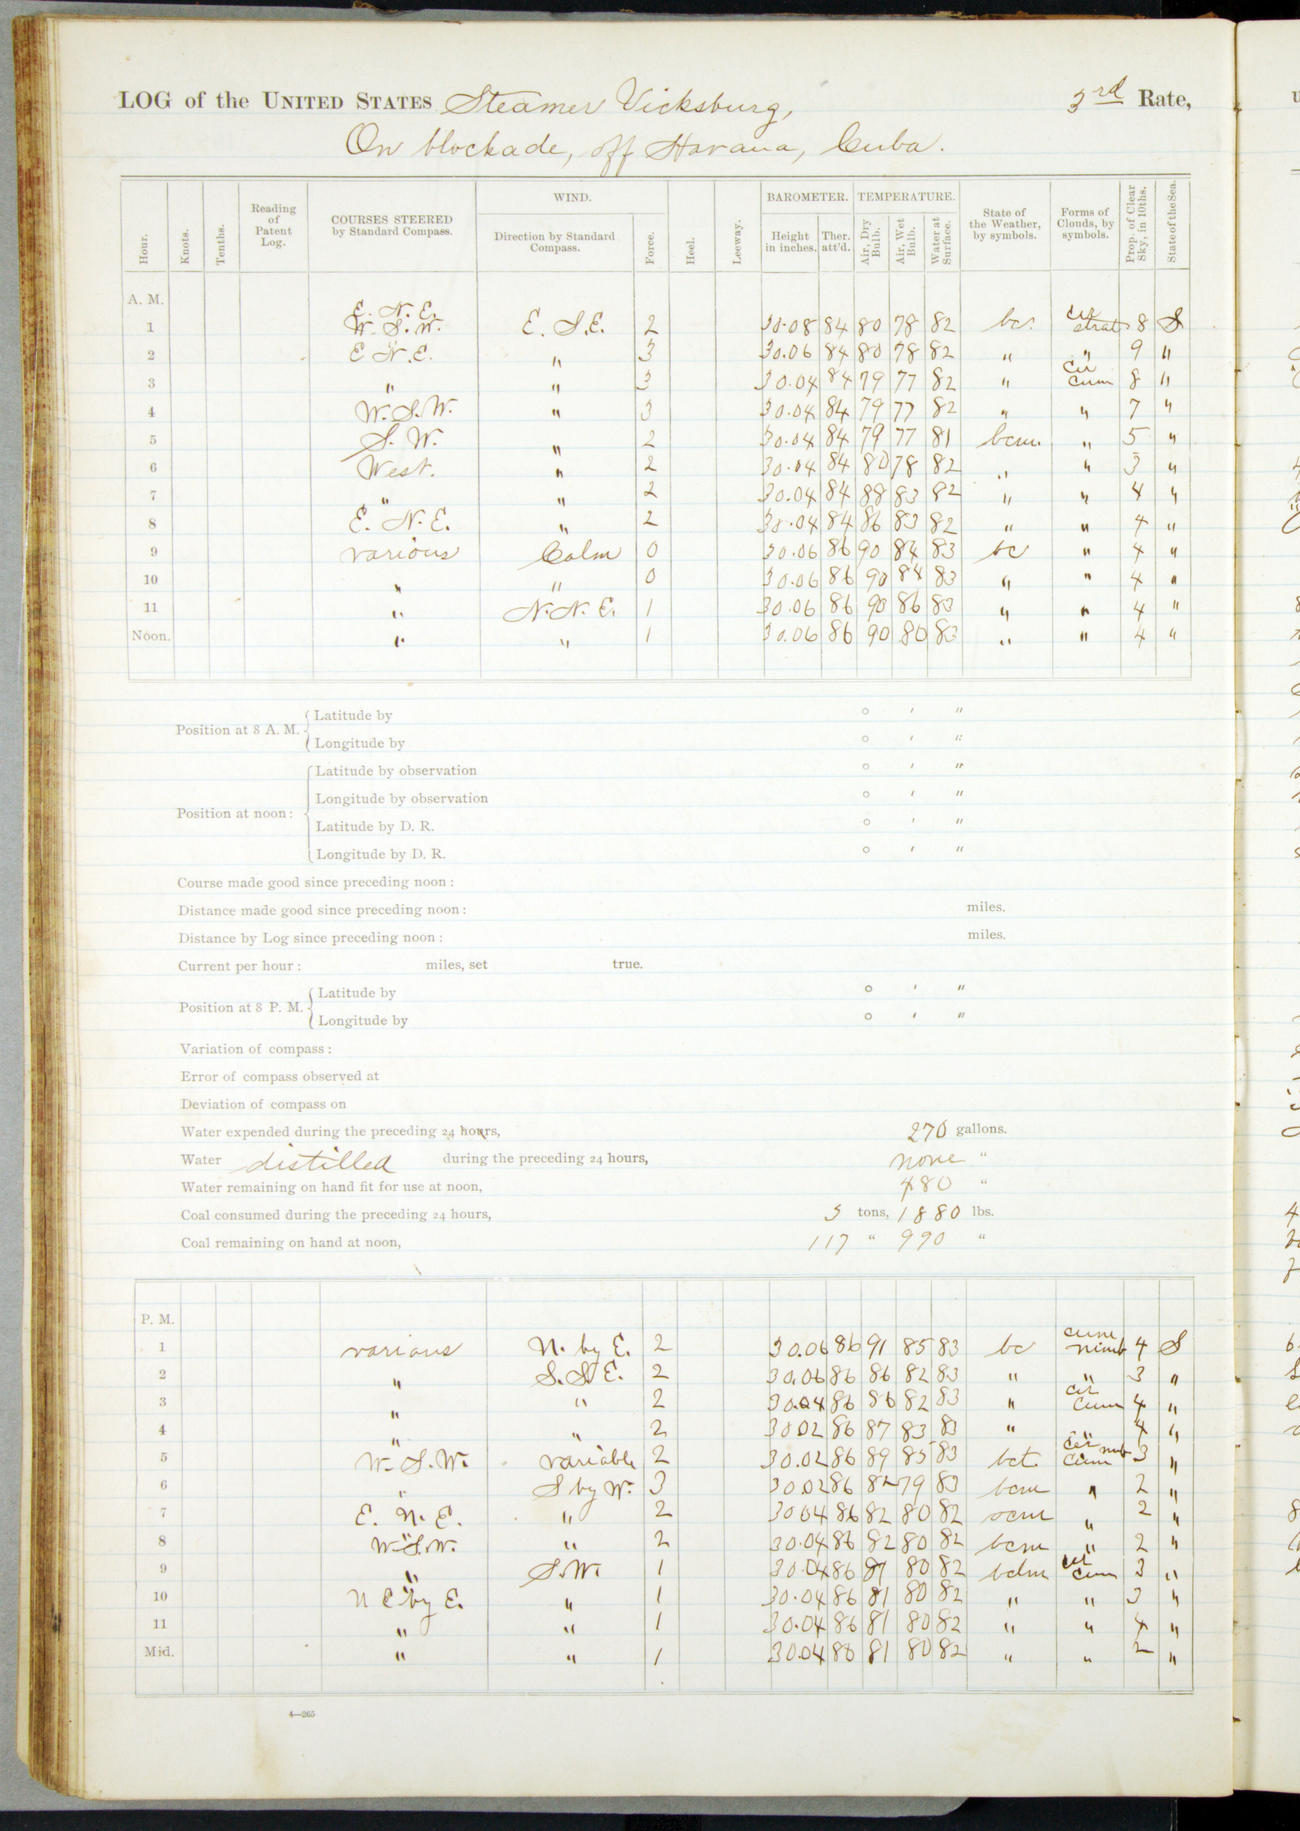 LOG of the UNITED STATES Steamer Vicksburg, 3rd Rate,
On blockade, off Havana, Cuba.
Hour. Knots. Tenths. Reading of Patent Log. COURSES STEERED by Standard Compass. WIND. Direction by Standard Compass. Force. Heel. Leeway. BAROMETER. Height in inches. Ther. att'd. TEMPERATURE. Air, Dry Bulb. Air, Wet Bulb. Water at Surface. State of the Weather, by symbols. Forms of Clouds, by symbols. Prop. of Clear Sky, in 10ths. State of the Sea.
A. M. E. N. E.
1 W. S. W. E. S.E. 2 30.08 84 80 78 82 bc. cir strat 8 S
2 E N.E. " 3 30.06 84 80 78 82 " " 9 "
3 " " 3 30.04 84 79 77 82 " cir cum 8 "
4 W.S.W. " 3 30.04 84 79 77 82 " " 7 "
5 S. W. " 2 30.04 84 79 77 81 bcm. " 5 "
6 West. " 2 30.04 84 80 78 82 " " 3 "
7 " " 2 30.04 84 88 83 82 " " 4 "
8 E. N. E. " 2 30.04 84 86 83 82 " " 4 "
9 various Calm 0 30.06 86 90 84 83 bc " 4 "
10 " " 0 30.06 86 90 84 83 " " 4 "
11 " N.N.E. 1 30.06 86 90 86 83 " " 4 "
Noon. " " 1 30.06 86 90 80 83 " " 4 "
Position at 8 A. M. Latitude by ° ' "
Longitude by ° ' "
Position at noon: Latitude by observation ° ' "
Longitude by observation ° ' "
Latitude by D. R. ° ' "
Longitude by D. R. ° ' "
Course made good since preceding noon:
Distance made good since preceding noon: miles.
Distance by Log since preceding noon: miles.
Current per hour: miles, set true.
Position at 8 P. M. Latitude by ° ' "
Longitude by ° ' "
Variation of compass:
Error of compass observed at
Deviation of compass on
Water expended during the preceding 24 hours, 270 gallons.
Water distilled during the preceding 24 hours, none "
Water remaining on hand fit for use at noon, 480 "
Coal consumed during the preceding 24 hours, 5 tons, 1880 lbs.
Coal remaining on hand at noon, 117 " 990 "
P. M.
1 various N. by E. 2 30.06 86 91 85 83 bc cum nimb 4 S
2 " S.S.E. 2 30.06 86 86 82 83 " " 3 "
3 " " 2 30.04 86 86 82 83 " cir cum 4 "
4 " " 2 30 02 86 87 83 83 " " 4 "
5 W. S.W. variable 2 30.02 86 89 85 83 bct. cir cum nimb 3 "
6 " S by W. 3 30 02 86 82 79 83 bcm " 2 "
7 E. N. E. " 2 30 04 86 82 80 82 ocm " 2 "
8 W.S.W. " 2 30.04 86 82 80 82 bcm " 2 "
9 " S.W. 1 30.04 86 81 80 82 bclm cir cum 3 "
10 N E by E. " 1 30.04 86 81 80 82 " " 3 "
11 " " 1 30.04 86 81 80 82 " " 4 "
Mid. " " 1 30.04 86 81 80 82 " " 2 "
4—265